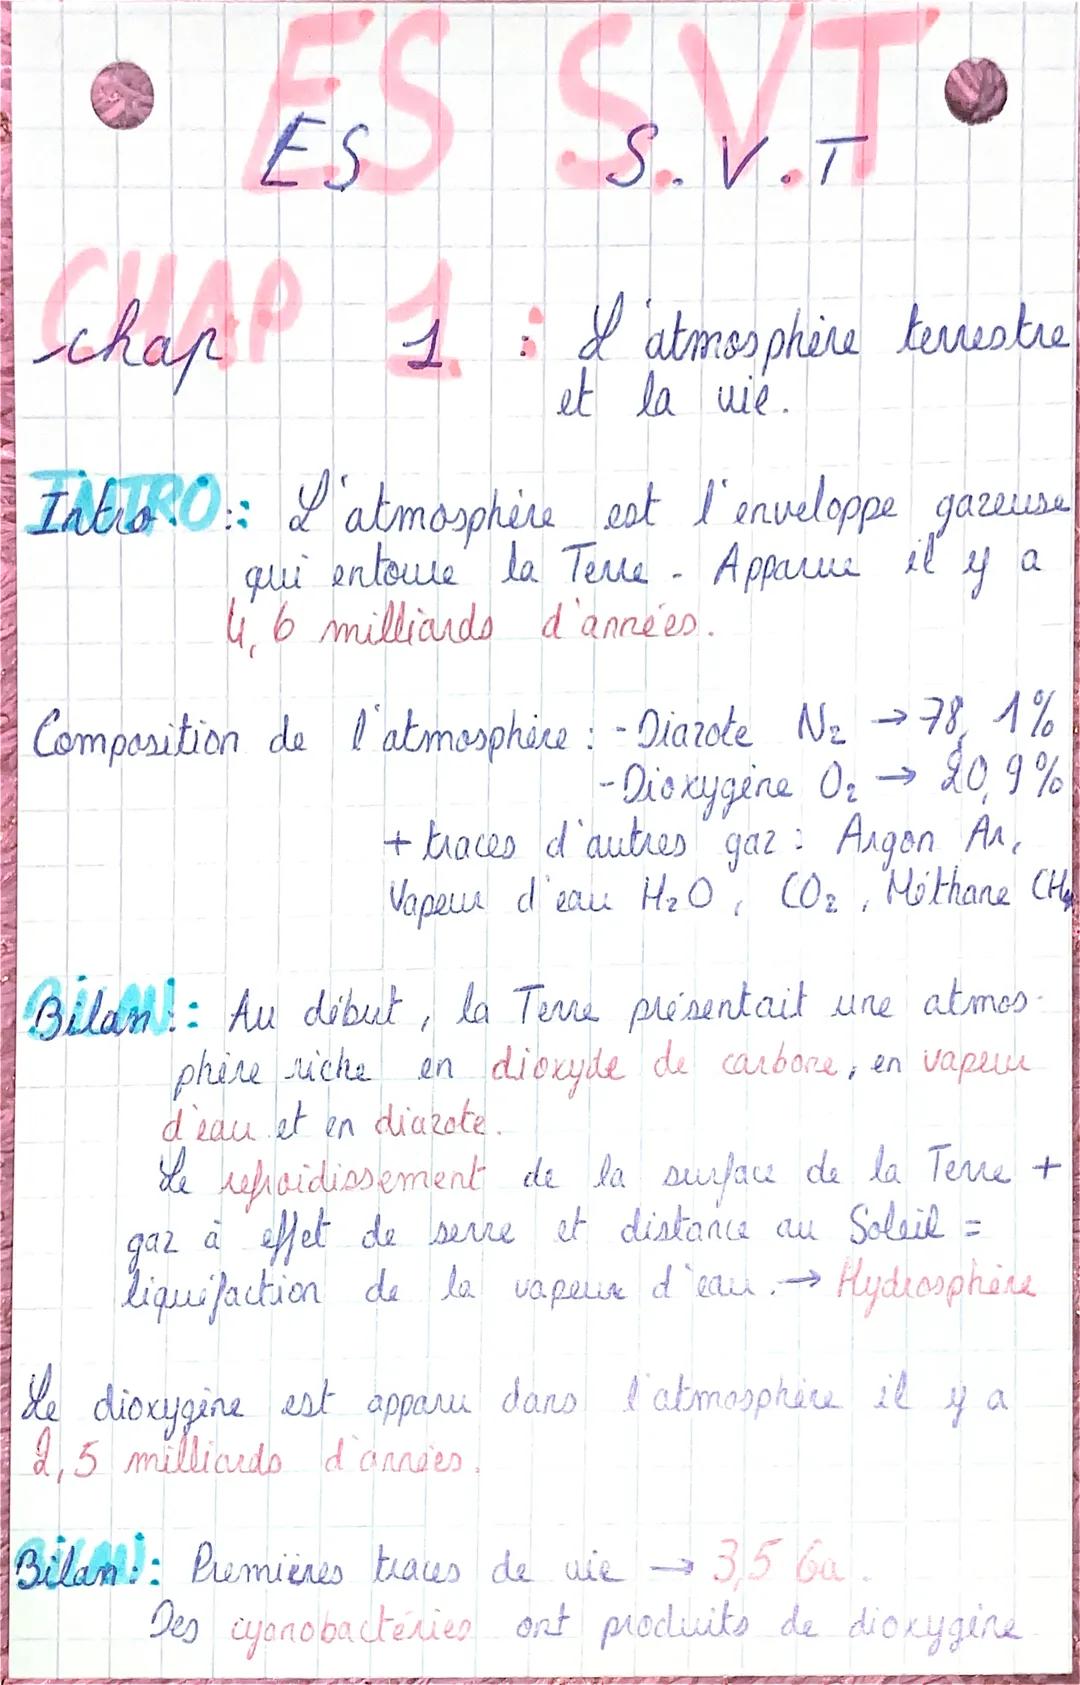 ES S.V.T
ES S.V.T
CHAP 1 :
chap 1 : L'atmosphère terrestre
et la vie.
INTRO :
Intro : L'atmosphère est l'enveloppe gazeuse
qui entoure la Terre. Apparue il y a
4,6 milliards d'années.
Composition de l'atmosphère : - Diazote N₂ → 78,1%
- Dioxygène O₂ → 20,9%
+ traces d'autres gaz : Argon Ar,
Vapeur d'eau H₂O, CO₂, Méthane CH₄
BILAN :
Bilan : Au début, la Terre présentait une atmos-
phère riche en dioxyde de carbone, en vapeur
d'eau et en diazote.
Le refroidissement de la surface de la Terre +
gaz à effet de serre et distance au Soleil =
liquéfaction de la vapeur d'eau. → Hydrosphère
Le dioxygène est apparu dans l'atmosphère il y a
2,5 milliards d'années.
BILAN :
Bilan : Premières traces de vie → 3,5 Ga.
Des cyanobactéries ont produits de dioxygène